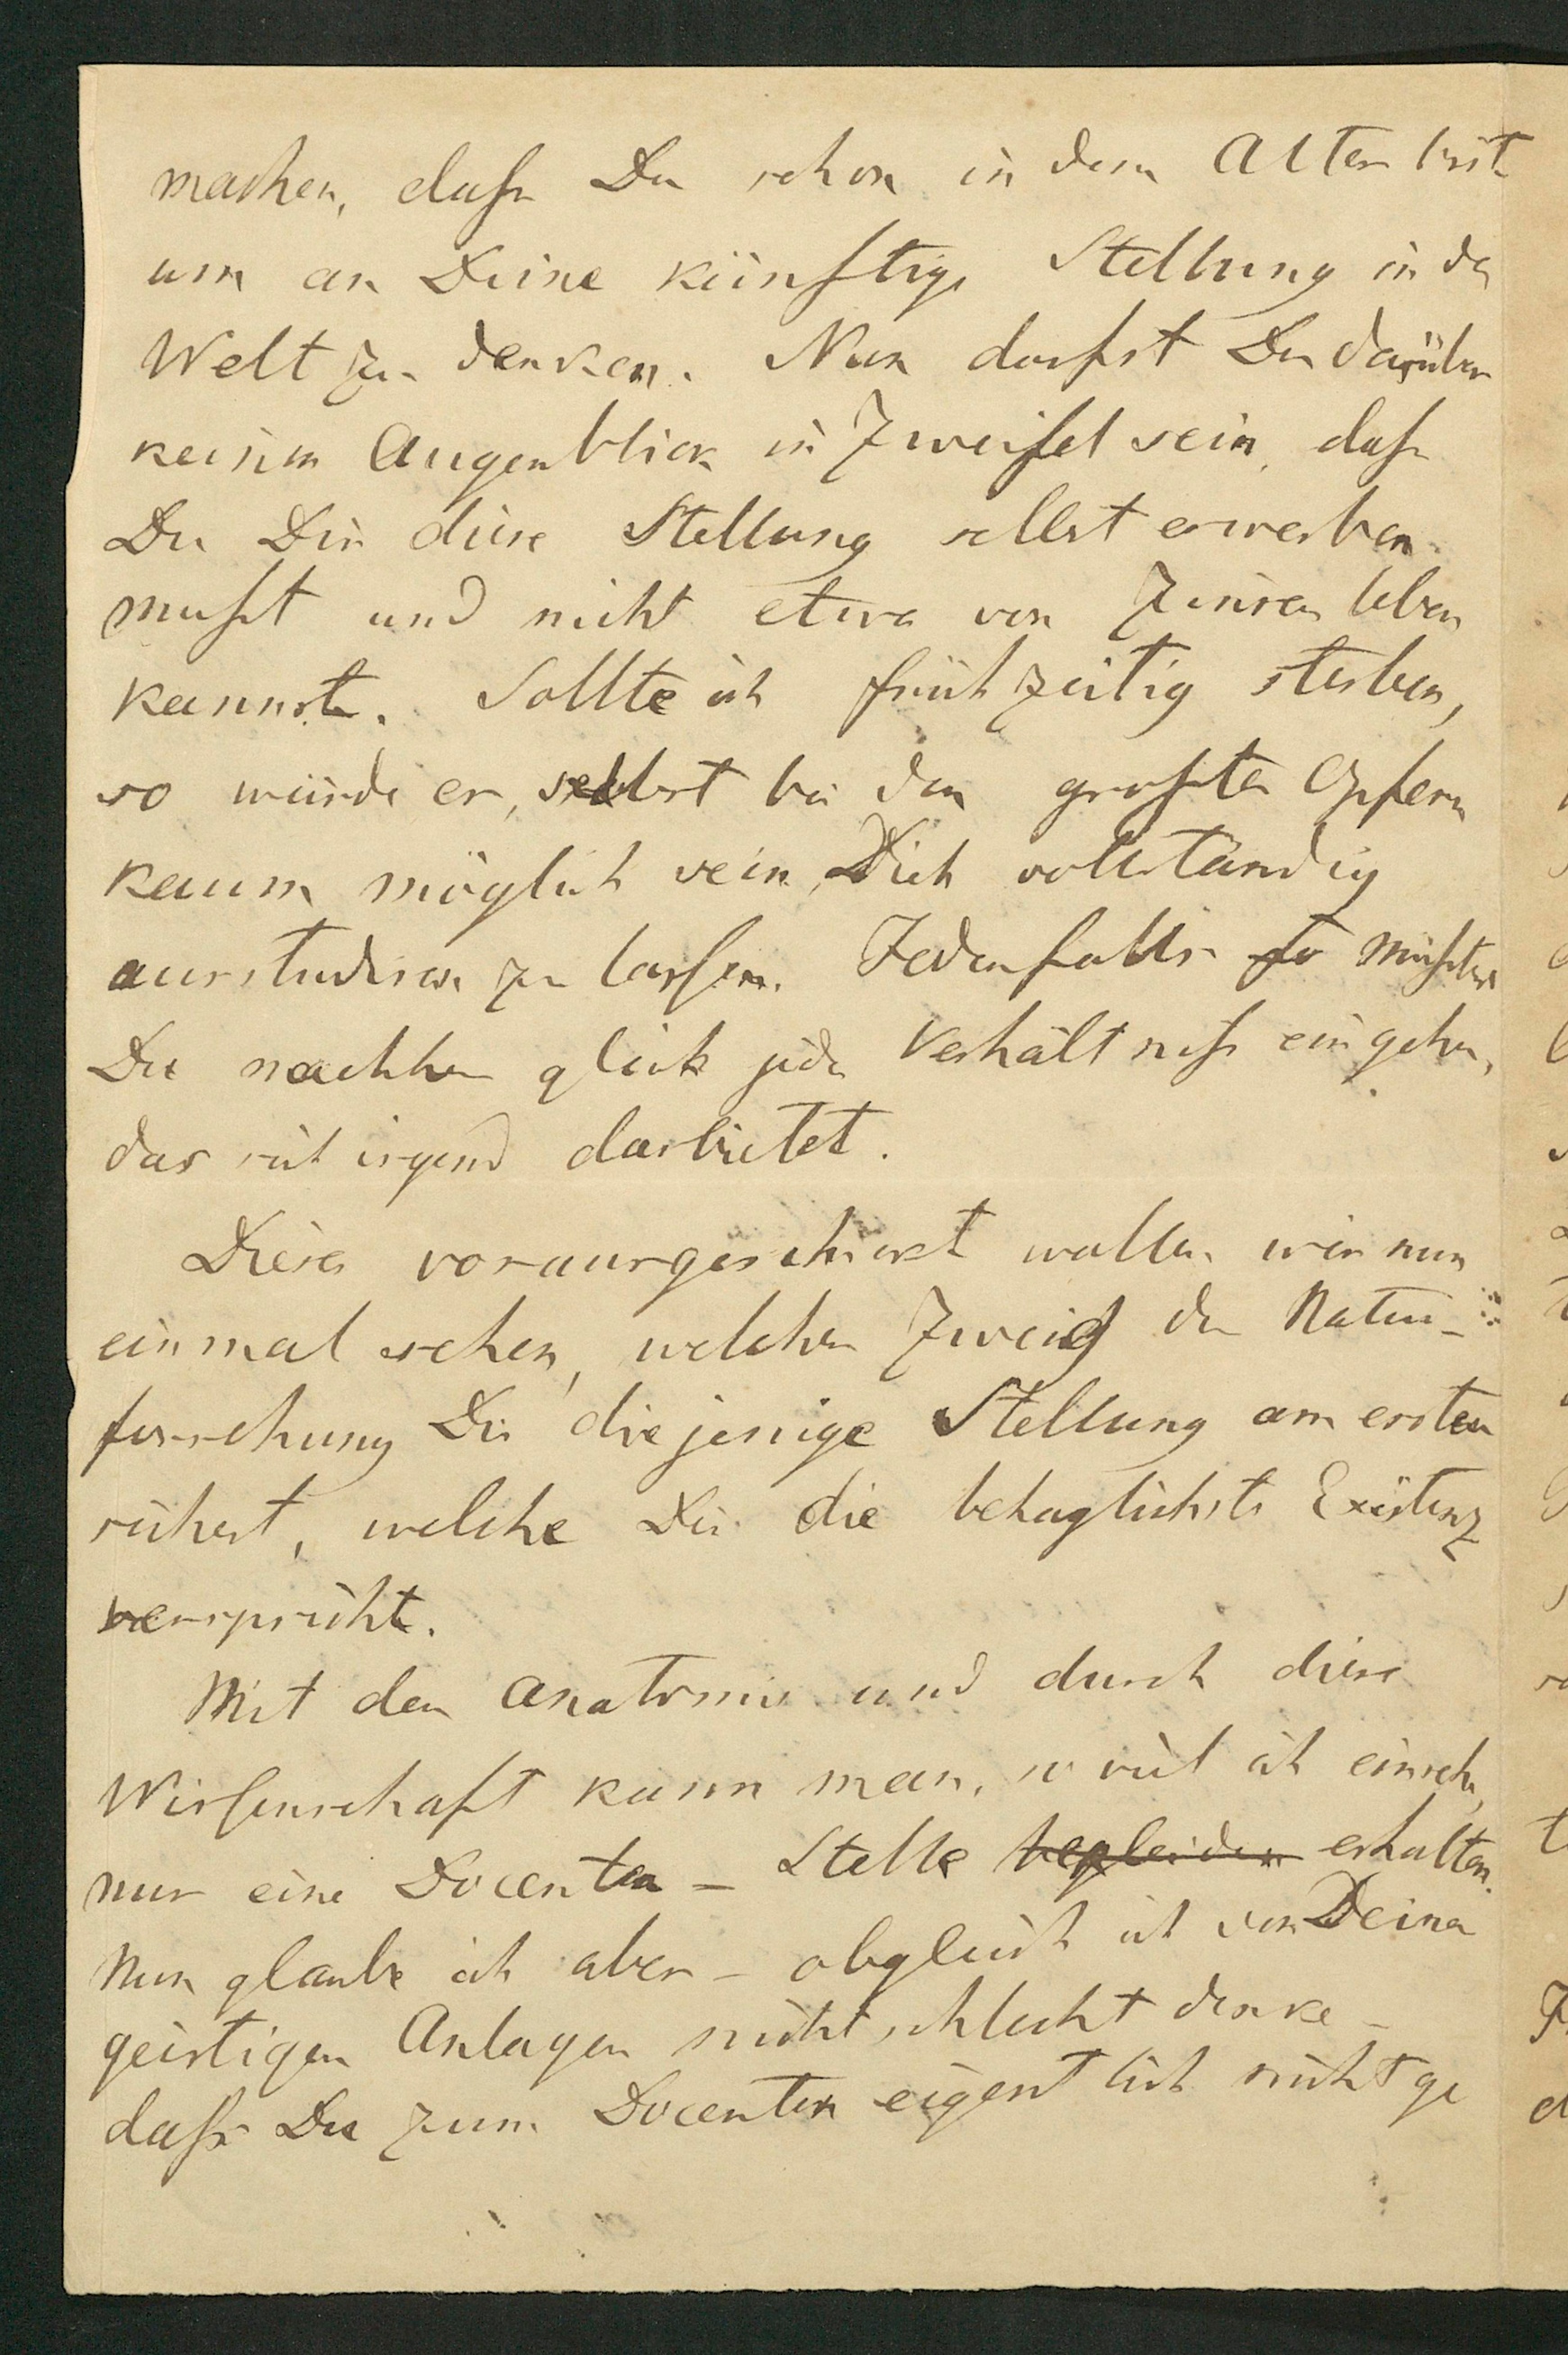 machen, daß Du schon in dem Alter bist
um an Deine künftige Stellung in der
Welt zu denken. Nun darfst Du darüber
keinen Augenblick in Zweifel sein, daß
Du Dir diese Stellung selbst erwerben
mußt und nicht etwa von Zinsen leben
kannst. Sollte ich frühzeitig sterben,
so würde es, selbst bei den großten Opfern
kaum möglich sein, Dich vollständig
ausstudiren zu lassen. Jedenfalls müßtest
Du nachher gleich jedes Verhältniß eingehen,
das sich irgend darbietet.
Dieses vorausgeschickt wollen wir nun
einmal sehen, welcher Zweig der Natur-
forschung Dir diejenige Stellung am ersten
sichert, welche Dir die behaglichste Existenz
verspricht.
Mit der Anatomie und durch diese
Wissenschaft kann man, so viel ich einsehe,
nur eine Docenten-Stelle begleiden erhalten.
Nun glaube ich aber – obgleich ich von Deinen
geistigen Anlagen nicht schlecht denke –
daß Du zum Docenten eigentlich nicht ge